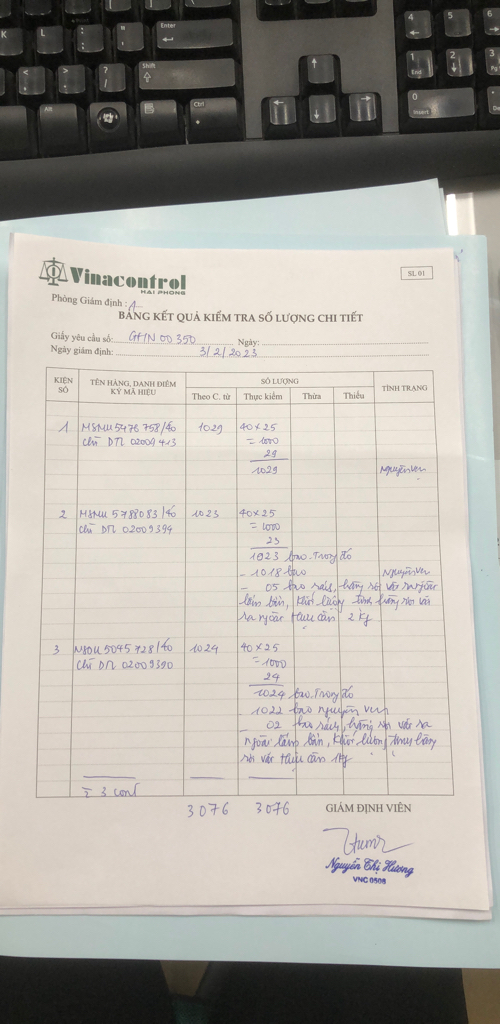 Enter
Shift
Alt
Ctrl
End
Insert
Vinacontrol
HAI PHONG
SL 01
Phòng Giám định : A
BẢNG KẾT QUẢ KIỂM TRA SỐ LƯỢNG CHI TIẾT
Giấy yêu cầu số: GHN 00350 Ngày:
Ngày giám định: 3/2/2023
KIỆN SỐ TÊN HÀNG, DANH ĐIỂM KÝ MÃ HIỆU SỐ LƯỢNG TÌNH TRẠNG
Theo C. từ Thực kiểm Thừa Thiếu
1 MSMU 5476 758/40 1029 40 x 25
chì DTL 02009413 = 1000
29
1029 nguyên vẹn
2 MSMU 5788083/40 1023 40x25
chì DTL 02009399 = 1000
23
1023 bao. Trong đó
- 1018 bao nguyên vẹn
- 05 bao rách, hàng rơi vãi ra ngoài
lấm bẩn, khối lượng tịnh hàng rơi vãi
ra ngoài thực cân 2 kg
3 5045 728/40 1024 40 x 25
chì DTL 02009390 = 1000
24
1024 bao. Trong đó
- 1022 bao nguyên vẹn
- 02 bao rách, hàng rơi vãi ra
ngoài lấm bẩn, khối lượng tịnh hàng
rơi vãi thực cân 1kg
Σ 3 cont
3076 3076 GIÁM ĐỊNH VIÊN
Nguyễn Thị Hương
VNC 0508